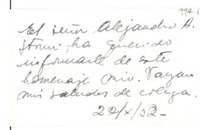 994-1
El señor Alejandro A.
Storni ha querido
informarle de este
homenaje mío. Vayan
mis saludos de colega.
22/X/52.